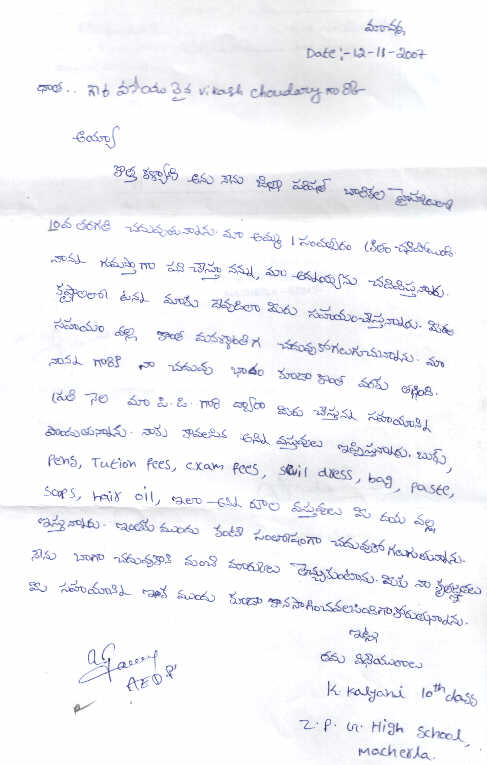 మాచర్ల
Date:- 12-11-2007
దాత.. గారి హోయు నైన vikash choudary గారికి
అయ్యా
కొత్త కళ్యాణి అను నేను జిల్లా పరిషత్ బాలికల హైస్కూలులో
10వ తరగతి చదువుతున్నాను. మా అమ్మ 1 సంవత్సరం క్రితం చనిపోయింది
నాన్న గుమస్తాగా పని చేస్తూ నన్ను, మా అన్నయ్యను చదివిస్తున్నాడు.
కష్టాలలో ఉన్న మాకు దేవుడిలా మీరు సహాయంచేస్తున్నారు. మీరు
సహాయం వల్ల కొంత మనశ్శాంతిగ చదువుకోగలుగుచున్నాను. మా
నాన్న గారికి నా చదువు భారం కూడా కొంత వరకు తగ్గింది.
ప్రతి నెల మా పి.డి. గారి ద్వారా మీరు చేస్తున్న సహాయాన్ని
పొందుతున్నాను. నాకు కావలసిన అన్ని వస్తువులు ఇప్పిస్తున్నారు. బుక్స్,
Pens, Tution fees, exam fees, dress, bag, paste,
soaps, hair oil, ఇలా అన్ని రకాల వస్తువులు మీ దయ వల్ల
ఇస్తున్నారు. ఇంతకు ముందు కంటే సంతోషంగా చదువుకో గలుగుతున్నాను.
నేను బాగా చదువుకొని మంచి మార్కులు తెచ్చుకుంటాను. మీకు నా కృతజ్ఞతలు
మీ సహాయాన్ని ఇక ముందు కూడా కొనసాగించవలసిందిగా కోరుతున్నాను.
ఇట్లు
తమ విధేయురాలు
K. Kalyani 10th class
Z. P. G. High School,
Macherla.